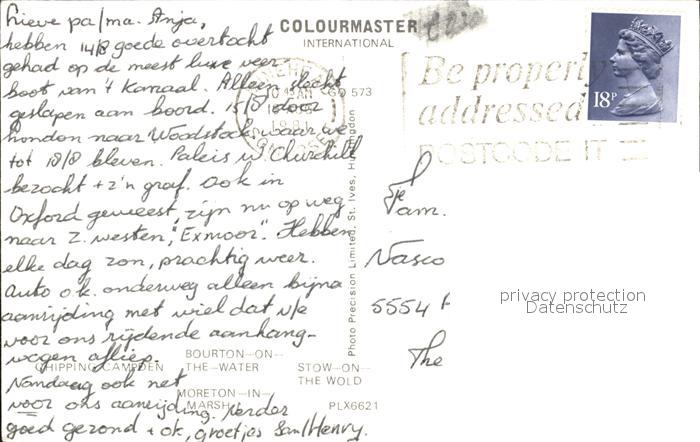 Lieve pa/ma. Anja,
hebben 14/8 goede overtocht
gehad op de meest luxe veer-
boot van 't Kanaal. Alleen slecht
geslapen aan boord. 15/8 door
Londen naar Woodstock, waar we
tot 18/8 bleven. Paleis W Churchill
bezocht + z'n graf. Ook in
Oxford geweest, zijn nu op weg
naar Z. westen, "Exmoor". Hebben
elke dag zon, prachtig weer.
Auto o.k. onderweg alleen bijna
aanrijding met wiel dat v/e
voor ons rijdende aanhang-
wagen afliep.
Vandaag ook net
voor ons aanrijding. Verder
goed gezond + ok, groetjes San/Henry.
COLOURMASTER
INTERNATIONAL
573
Photo Precision Limited, St. Ives, Huntingdon
CHIPPING CAMPDEN
BOURTON-ON-
THE-WATER
STOW-ON-
THE WOLD
MORETON-IN-
MARSH
PLX6621
Be properl
addressed
POSTCODE IT
18P
Fam.
Nasco
5554
The
privacy protection
Datenschutz